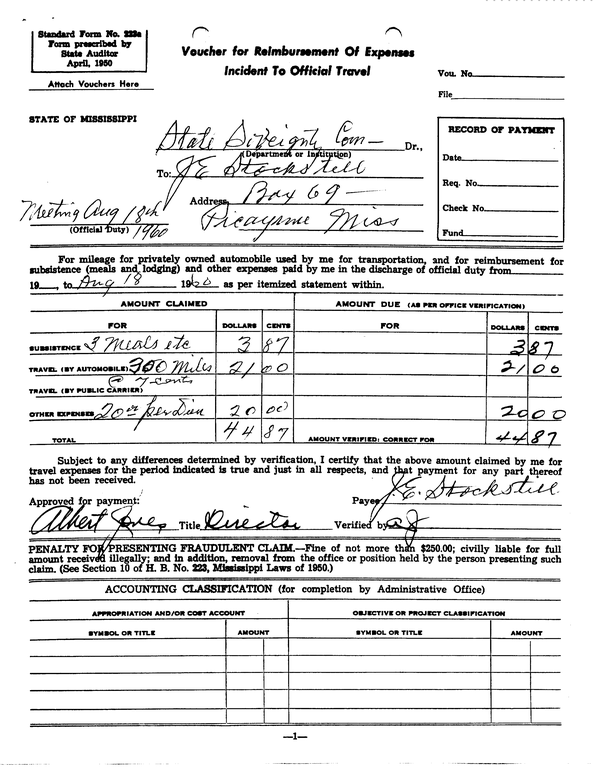 Standard Form No. 223a
Form prescribed by
State Auditor
April, 1950
Attach Vouchers Here
Voucher for Reimbursement Of Expenses
Incident To Official Travel
Vou. No.
File
STATE OF MISSISSIPPI
State Soveignty Com— Dr.,
(Department or Institution)
To: JE Stockstill
Address Box 69 —
Picayune Miss
Meeting Aug 18th
(Official Duty) 1960
RECORD OF PAYMENT
Date
Req. No.
Check No.
Fund
For mileage for privately owned automobile used by me for transportation, and for reimbursement for
subsistence (meals and lodging) and other expenses paid by me in the discharge of official duty from
19 , to Aug 18 1960 as per itemized statement within.
AMOUNT CLAIMED AMOUNT DUE (AS PER OFFICE VERIFICATION)
FOR DOLLARS CENTS FOR DOLLARS CENTS
SUBSISTENCE 3 Meals etc 3 87 3 87
TRAVEL (BY AUTOMOBILE) 300 Miles 21 00 21 00
@ 7 cents
TRAVEL (BY PUBLIC CARRIER)
OTHER EXPENSES 20 00 per Diem 20 00 20 00
TOTAL 44 87 AMOUNT VERIFIED: CORRECT FOR 44 87
Subject to any differences determined by verification, I certify that the above amount claimed by me for
travel expenses for the period indicated is true and just in all respects, and that payment for any part thereof
has not been received.
Approved for payment: Payee J.E. Stockstill
Albert Jones Title Director Verified by
PENALTY FOR PRESENTING FRAUDULENT CLAIM.—Fine of not more than $250.00; civilly liable for full
amount received illegally; and in addition, removal from the office or position held by the person presenting such
claim. (See Section 10 of H. B. No. 223, Mississippi Laws of 1950.)
ACCOUNTING CLASSIFICATION (for completion by Administrative Office)
APPROPRIATION AND/OR COST ACCOUNT OBJECTIVE OR PROJECT CLASSIFICATION
SYMBOL OR TITLE AMOUNT SYMBOL OR TITLE AMOUNT
—1—